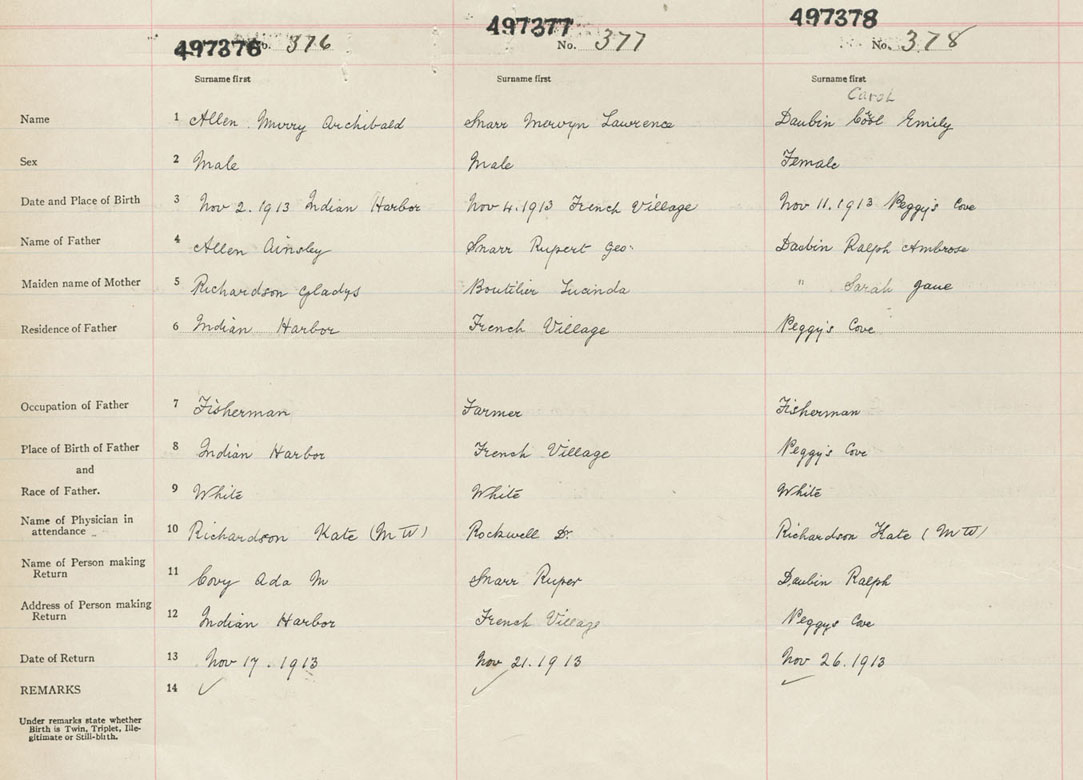 497376 No. 376 497377 No. 377 497378 No. 378
Surname first Surname first Surname first
Carol
Name 1 Allen Murry Archibald Snarr Mervyn Lawrence Daubin Emily
Sex 2 Male Male Female
Date and Place of Birth 3 Nov 2. 1913 Indian Harbor Nov 4. 1913 French Village Nov 11. 1913 Peggy's Cove
Name of Father 4 Allen Ainsley Snarr Rupert Geo: Daubin Ralph Ambrose
Maiden name of Mother 5 Richardson Gladys Boutilier Lucinda " Sarah Jane
Residence of Father 6 Indian Harbor French Village Peggy's Cove
Occupation of Father 7 Fisherman Farmer Fisherman
Place of Birth of Father 8 Indian Harbor French Village Peggy's Cove
and
Race of Father. 9 White White White
Name of Physician in
attendance 10 Richardson Kate (M W) Rockwell Dr. Richardson Kate (M W)
Name of Person making
Return 11 Covy Ada M Snarr Ruper Daubin Ralph
Address of Person making
Return 12 Indian Harbor French Village Peggys Cove
Date of Return 13 Nov 17. 1913 Nov 21. 1913 Nov 26. 1913
REMARKS 14
Under remarks state whether
Birth is Twin, Triplet, Ille-
gitimate or Still-birth.